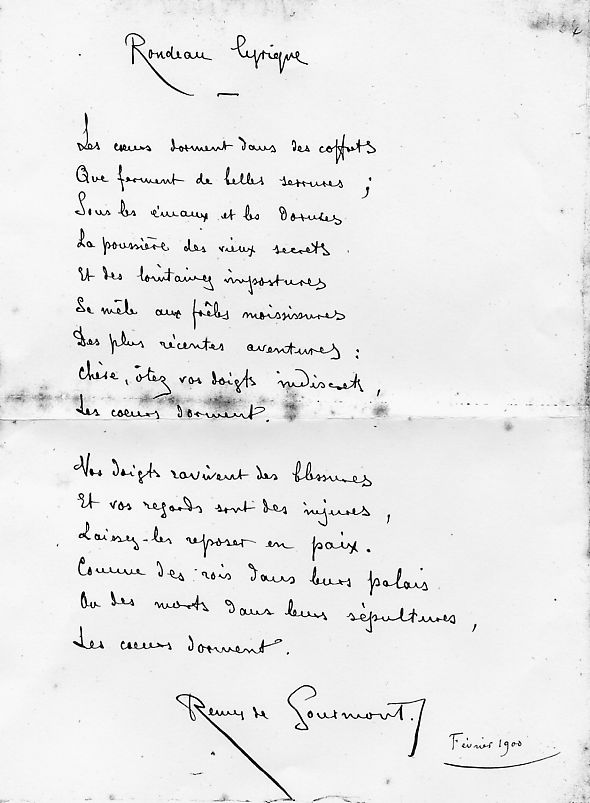 Rondeau lyrique
Les cœurs dorment dans des coffrets
Que ferment de belles serrures ;
Sous les émaux et les dorures
La poussière des vieux secrets
Et des lointaines impostures
Se mêle aux frêles moisissures
Des plus récentes aventures :
Chère, ôtez vos doigts indiscrets,
Les cœurs dorment.
Vos doigts ravivent des blessures
Et vos regards sont des injures,
Laissez-les reposer en paix.
Comme des rois dans leurs palais
Ou des morts dans leurs sépultures,
Les cœurs dorment.
Remy de Gourmont.
Février 1900